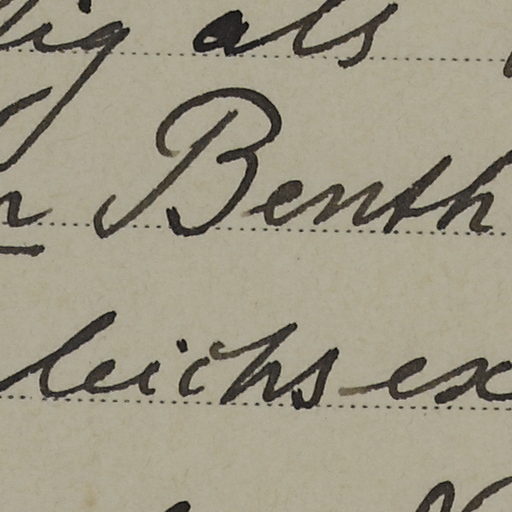 ig als
Benth
leichs ex